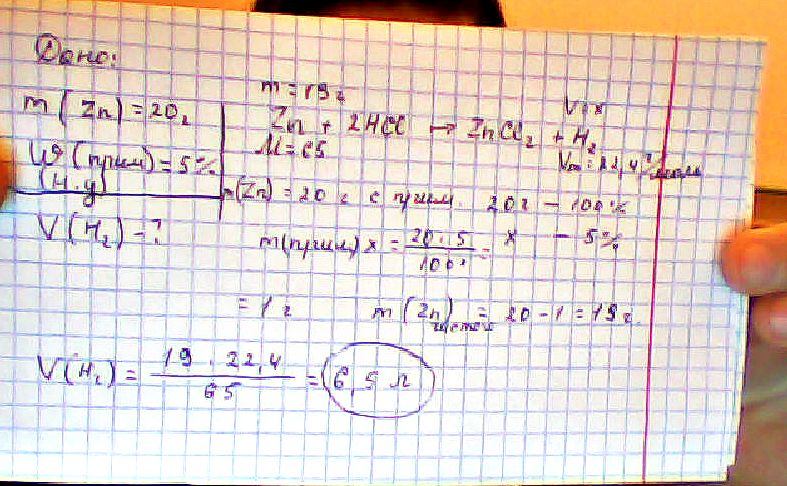 Дано:
m(Zn)=20г
ω(прим)=5%
(н.у)
V(H₂)-?
m=19г V=x
Zn + 2HCl → ZnCl₂ + H₂
M=65 Vm=22,4 л/моль
m(Zn)=20 г с прим. 20г – 100%
m(прим) x = 20·5/100 = x – 5%
=1г m(Zn)чистый = 20-1=19г.
V(H₂) = 19·22,4/65 = 6,5 л